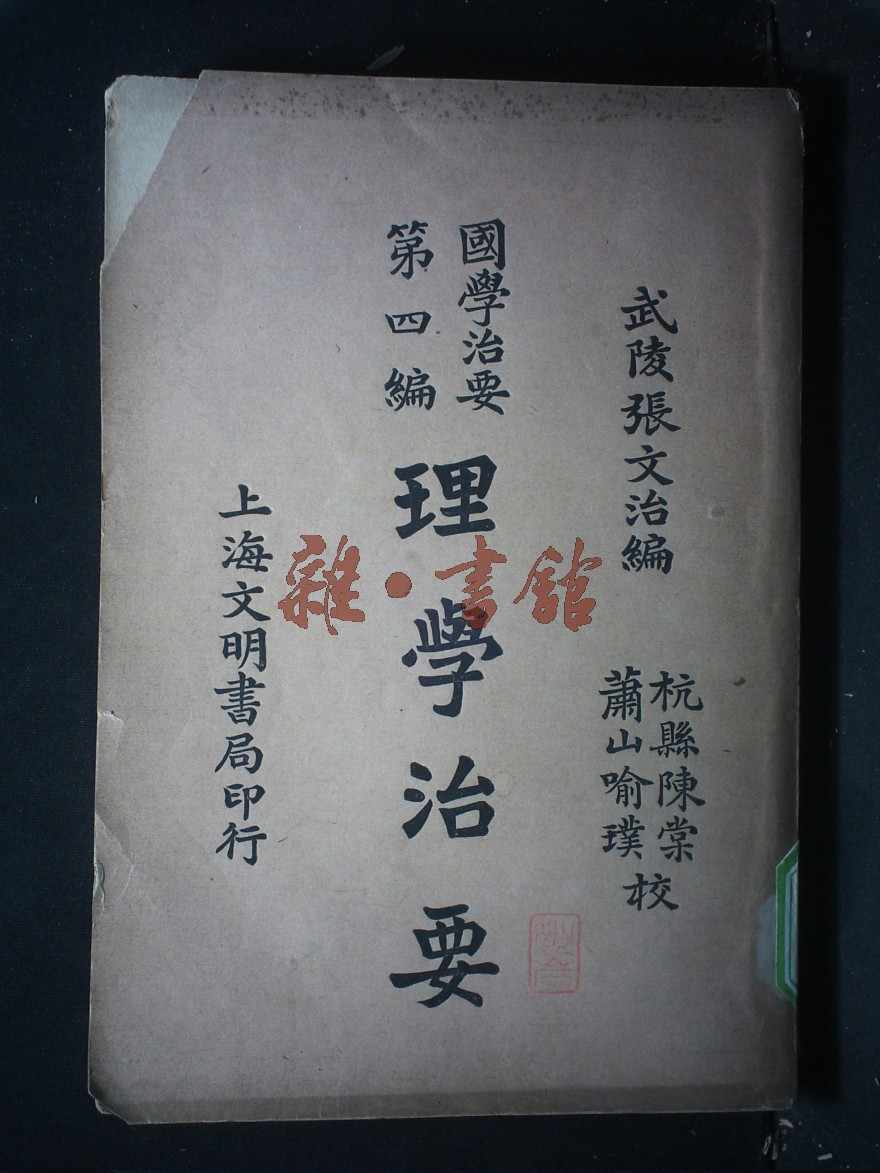 武陵張文治編
杭縣陳棠
蕭山喻璞
校
國學治要
第四編
理學治要
上海文明書局印行
雜·書館